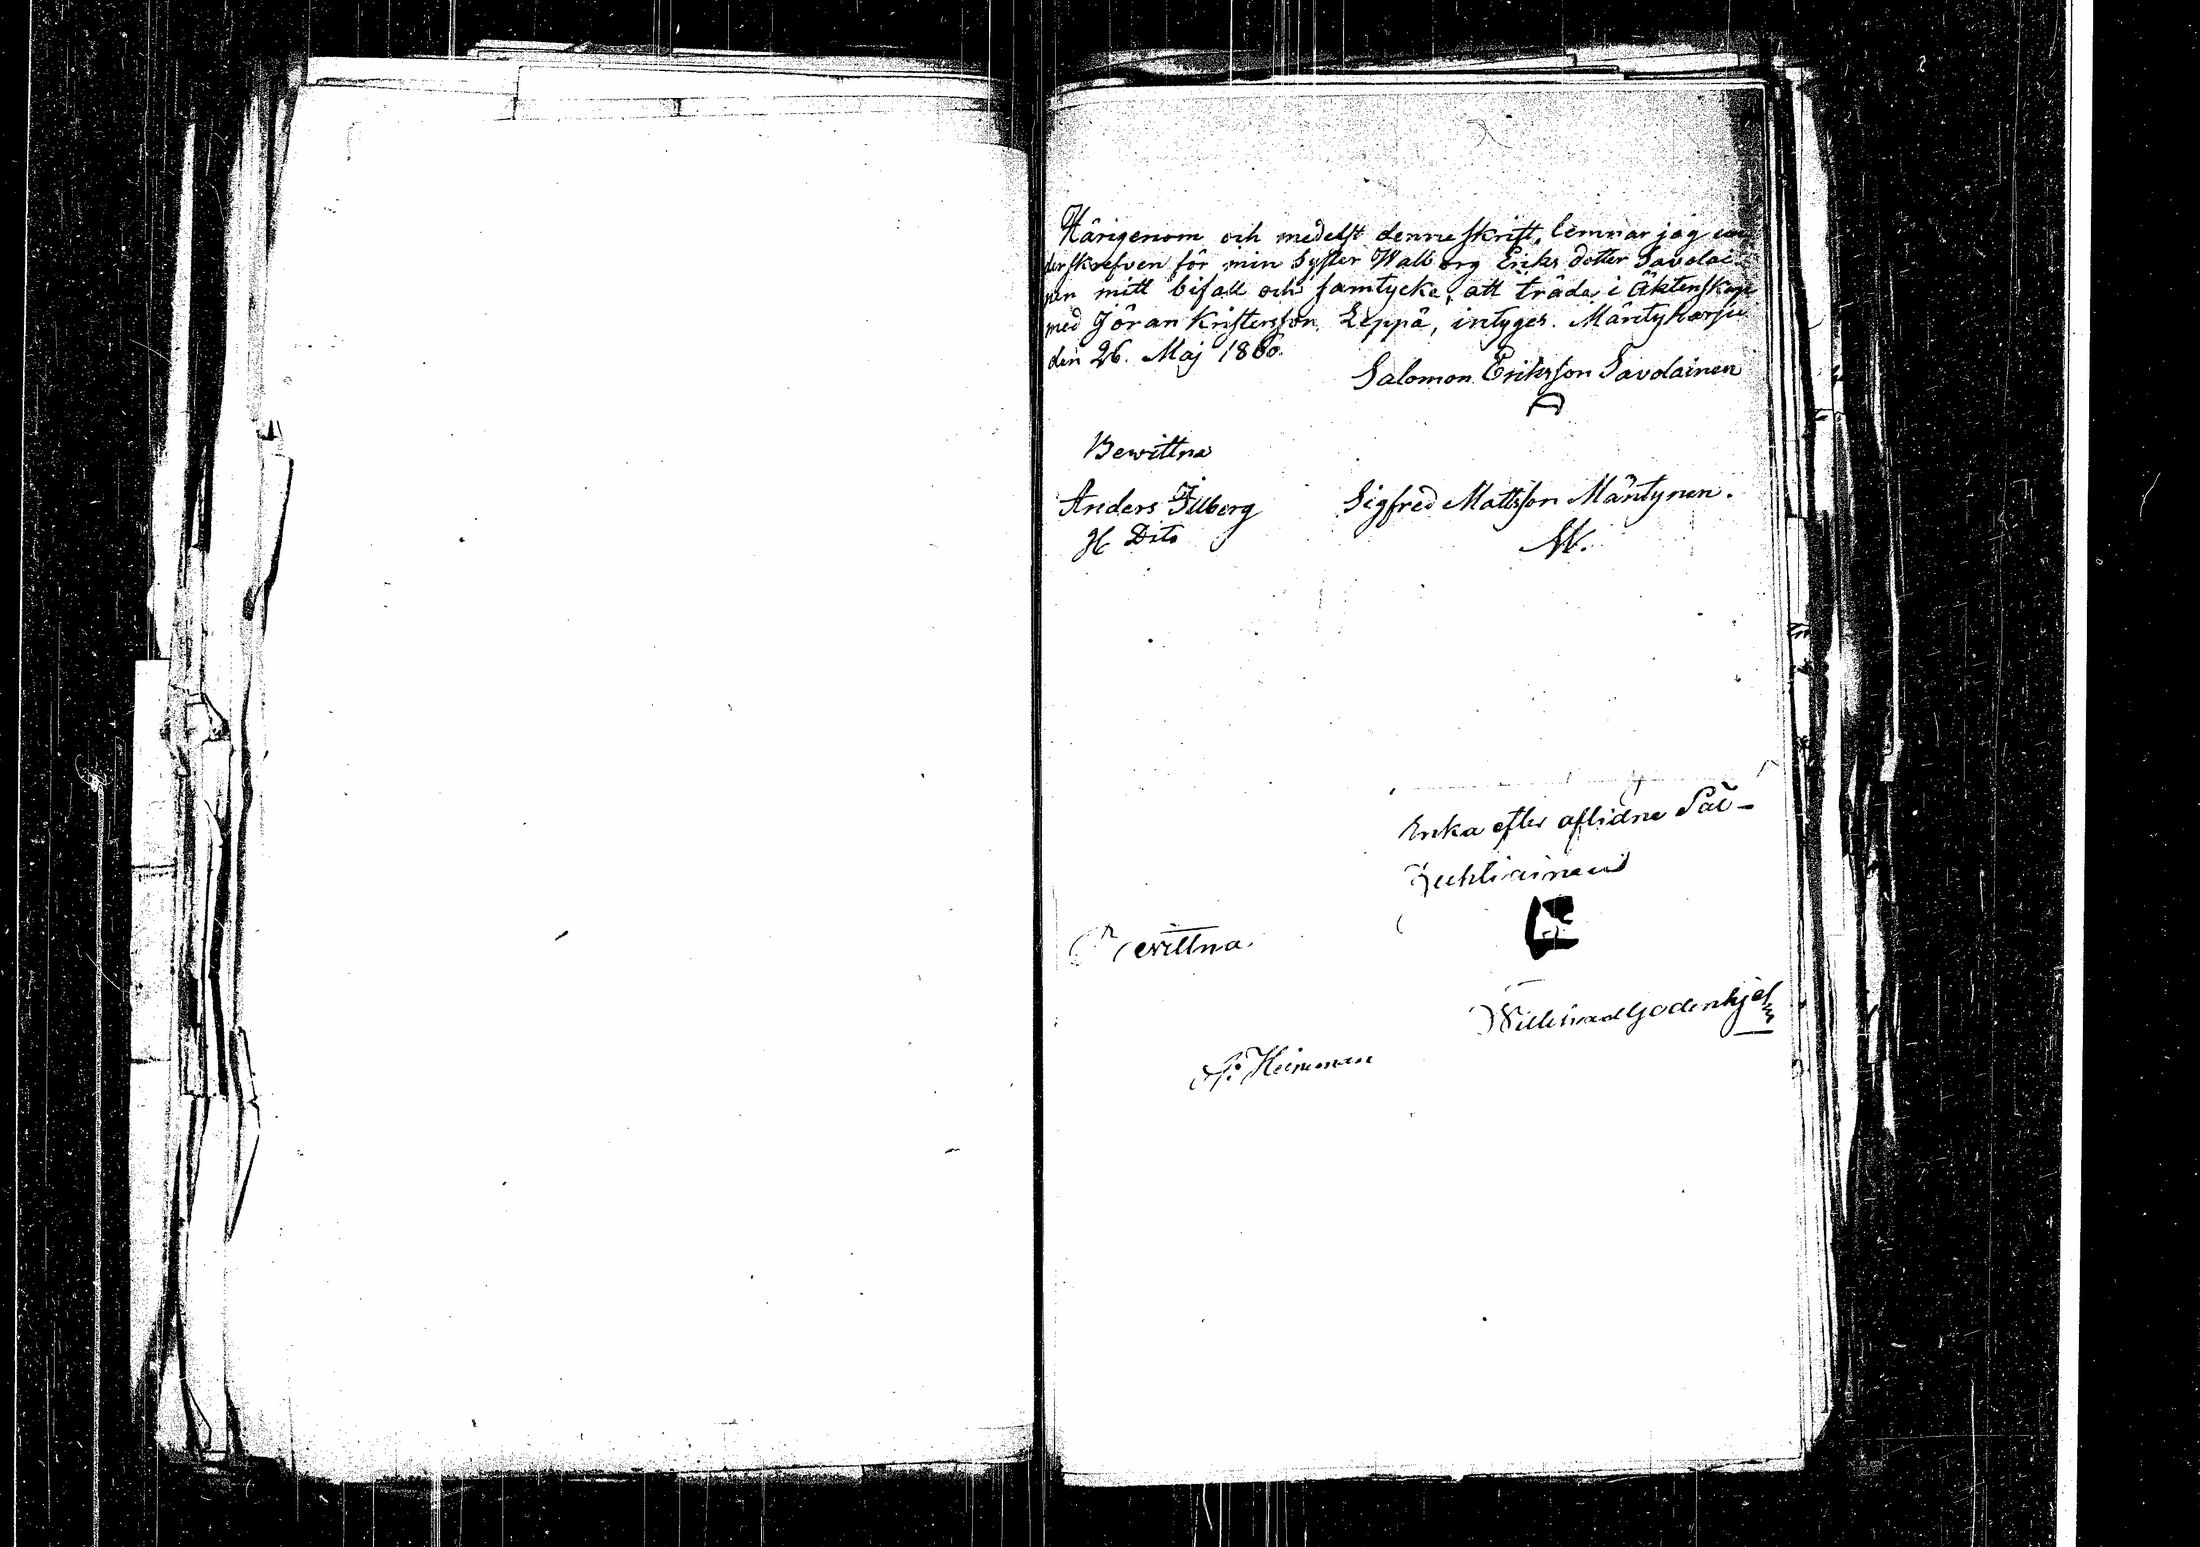 Härigenom och medelst denne skrift, lemnar jag un
derskrefven för min Syster Walborg Eriks dotter Savolai-
nen mitt bifall och samtycke, att träda i Äktenskap
med Jöran Kristersson Leppä, intyges. Mäntyharju
den 26. Maj 1860.
Salomon Eriksson Savolainen
Bewittna
Anders Illberg Sigfred Mattsson Mäntynen.
H Dito M.
Enka efter aflidne Pål-
Bewittna
Godenhjelm
Heinman